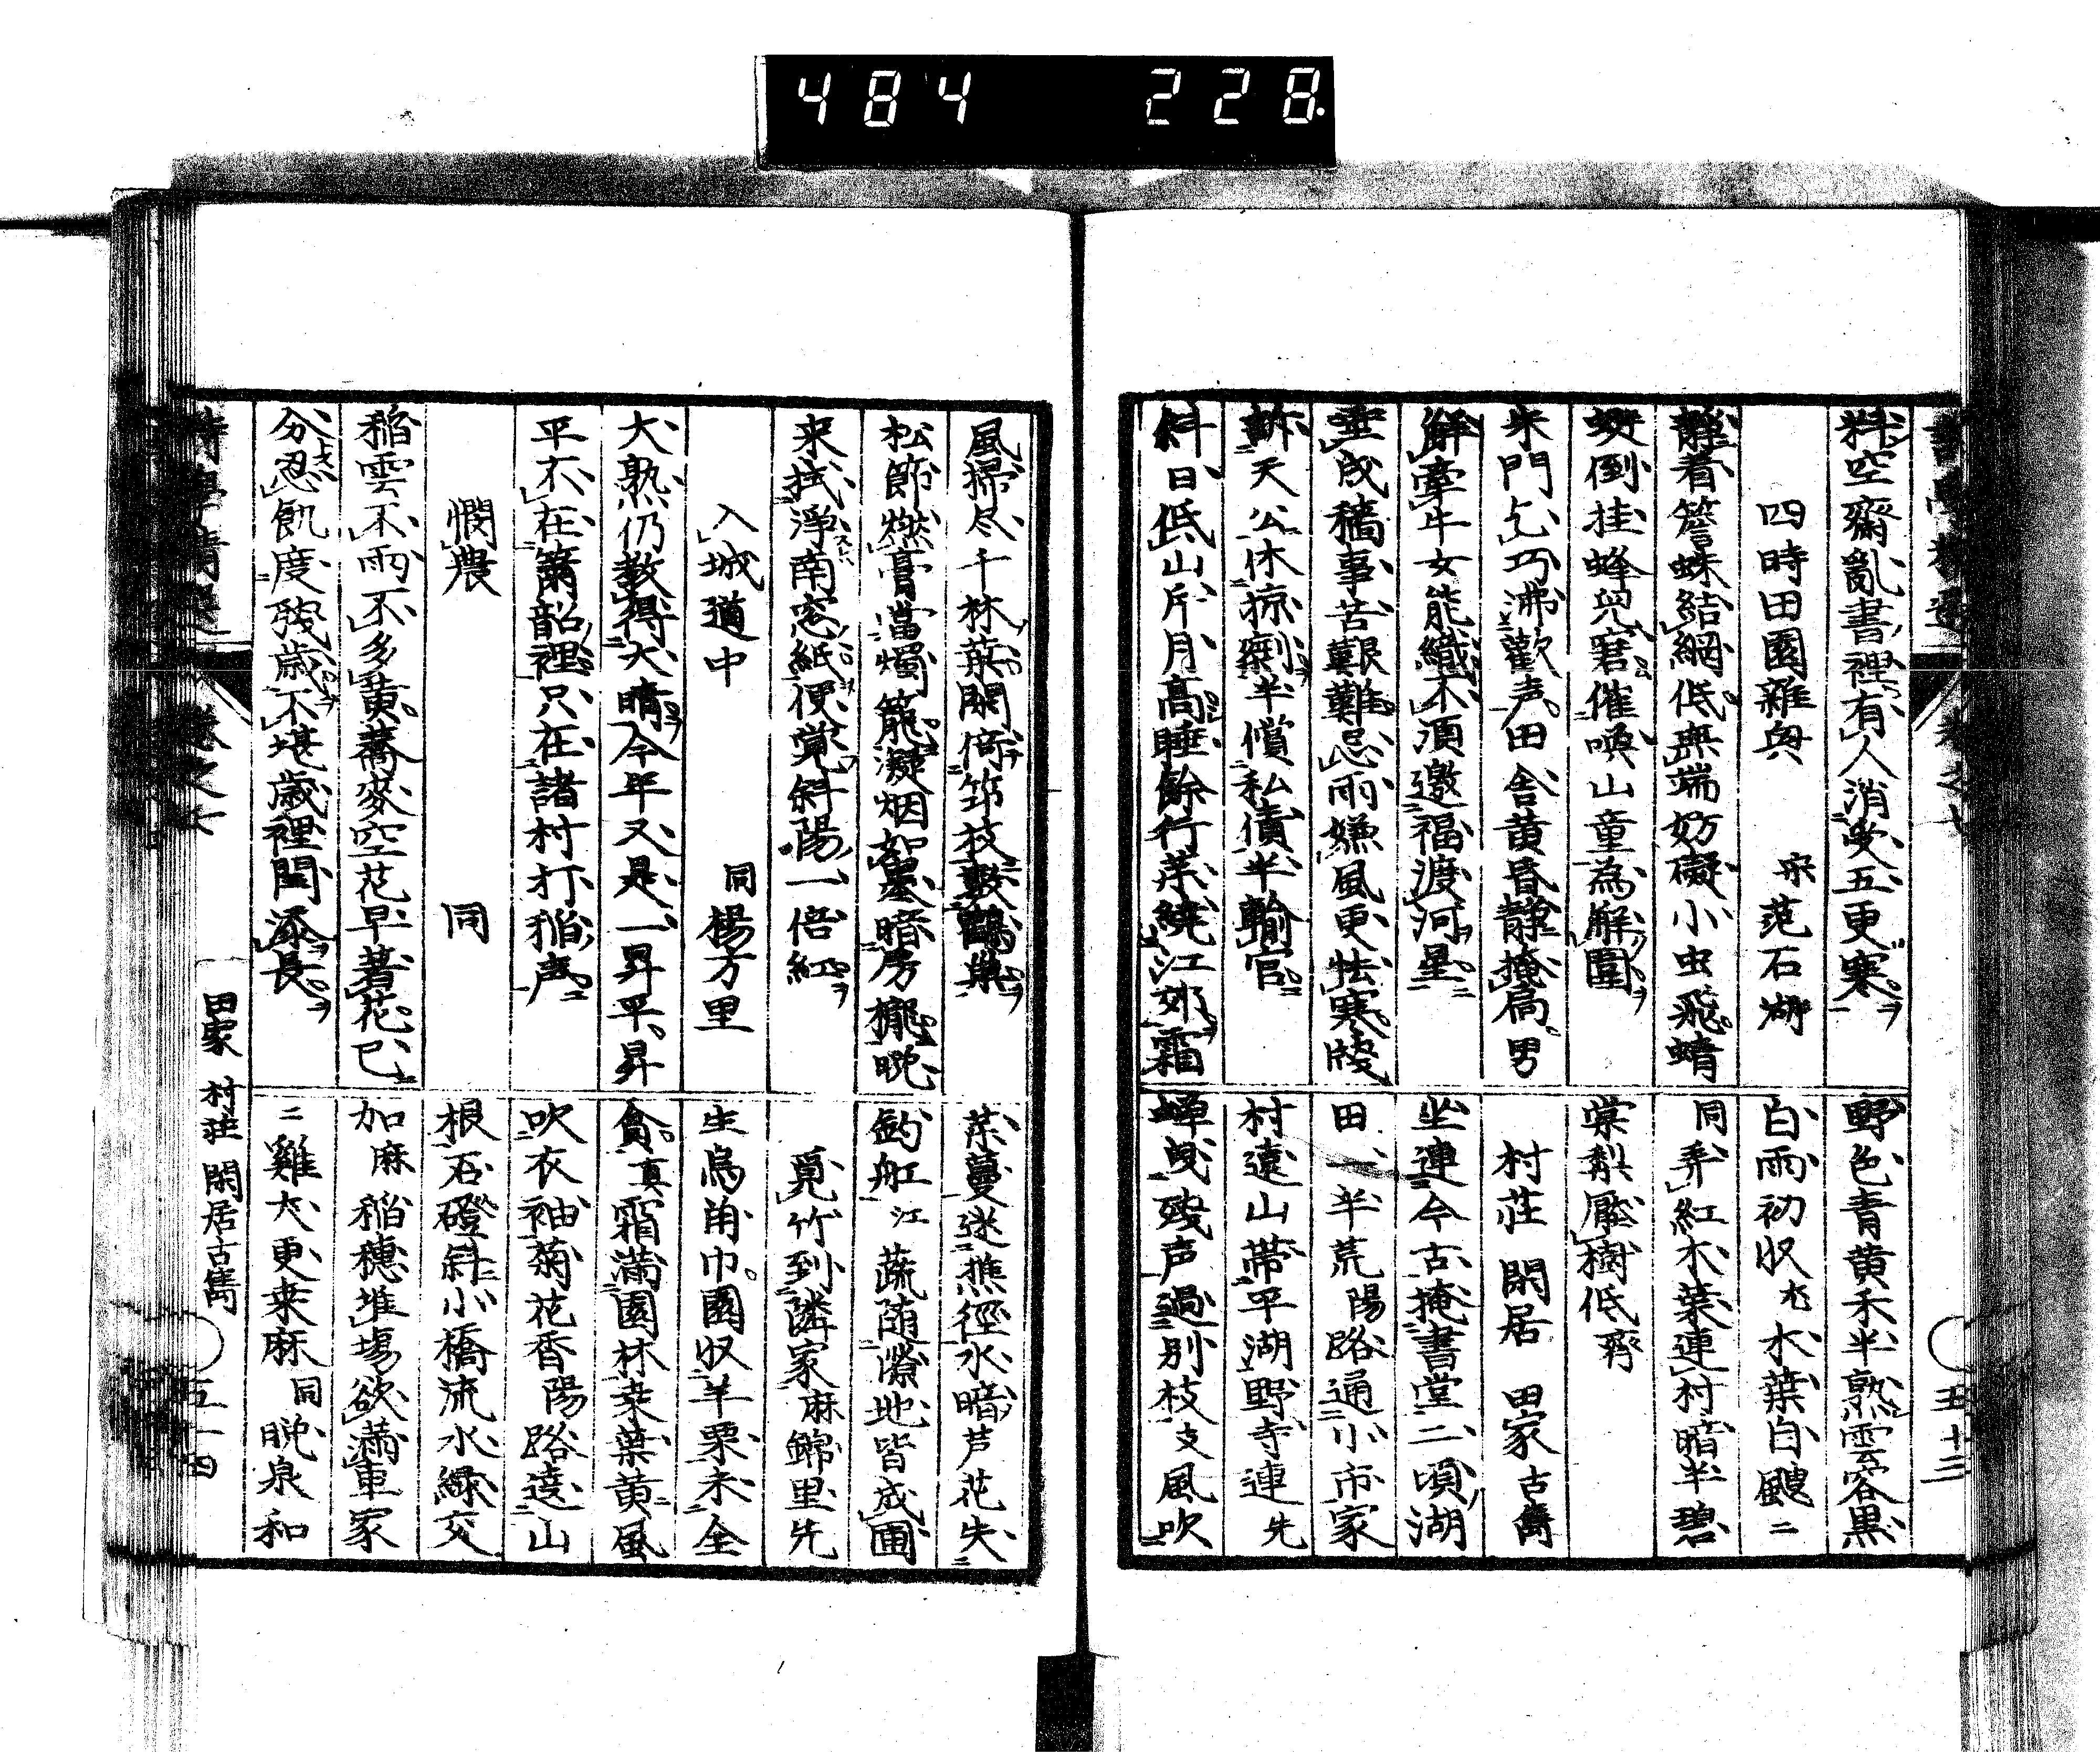 484 228
料空齋亂書裡有人消受五更寒
四時田園雜興 宋 范石湖
靜看簷蛛結網低無端妨礙小虫飛蜻
蜓倒挂蜂児窘催喚山童為解圍
朱門乞巧沸歡声田舎黄昏靜掩扃男
解牽牛女能織不須邀福渡河星
垂成穡事苦艱難忌雨嫌風更怯寒牋
訴天公休掠剩半償私債半輸官
斜日低山片月高睡餘行薬繞江郊霜
野色青黄禾半熟雲容黒
白雨初収尤木葉白颼〻
同弄紅木葉連村暗半碧
棠梨靨樹低齊
村荘 閑居 田家 古雋
坐連今古掩書堂二頃湖
田一半荒陽路通小市家
村遠山帶平湖野寺連先
蝉曳残声過別枝支風吹
五十三
風掃尽千林葉閑倚筇枝數鸛巣
松節燃膏當燭籠凝烟如墨暗房櫳晩
来拭淨南窓紙便覚斜陽一倍紅
入城道中 同 楊万里
大熟仍教得大晴今年又是一昇平昇
平不在簫韶裡只在諸村打稲声
憫農 同
稲雲不雨不多黄蕎麥空花早著花已
分忍飢度残歳不堪歳裡閏添長
菜蔓迷樵徑水暗芦花失
釣舡江蔬随隙地皆成圃
覓竹到隣家麻錦里先
生烏角巾園収芋栗未全
貧真霜満園林桒葉黄風
吹衣袖菊花香陽路遶山
根石磴斜小橋流水緑交
加麻稲穗堆塲欲満車家
〻雞犬更桒麻同晩泉和
田家 村荘 閑居古雋
五十四